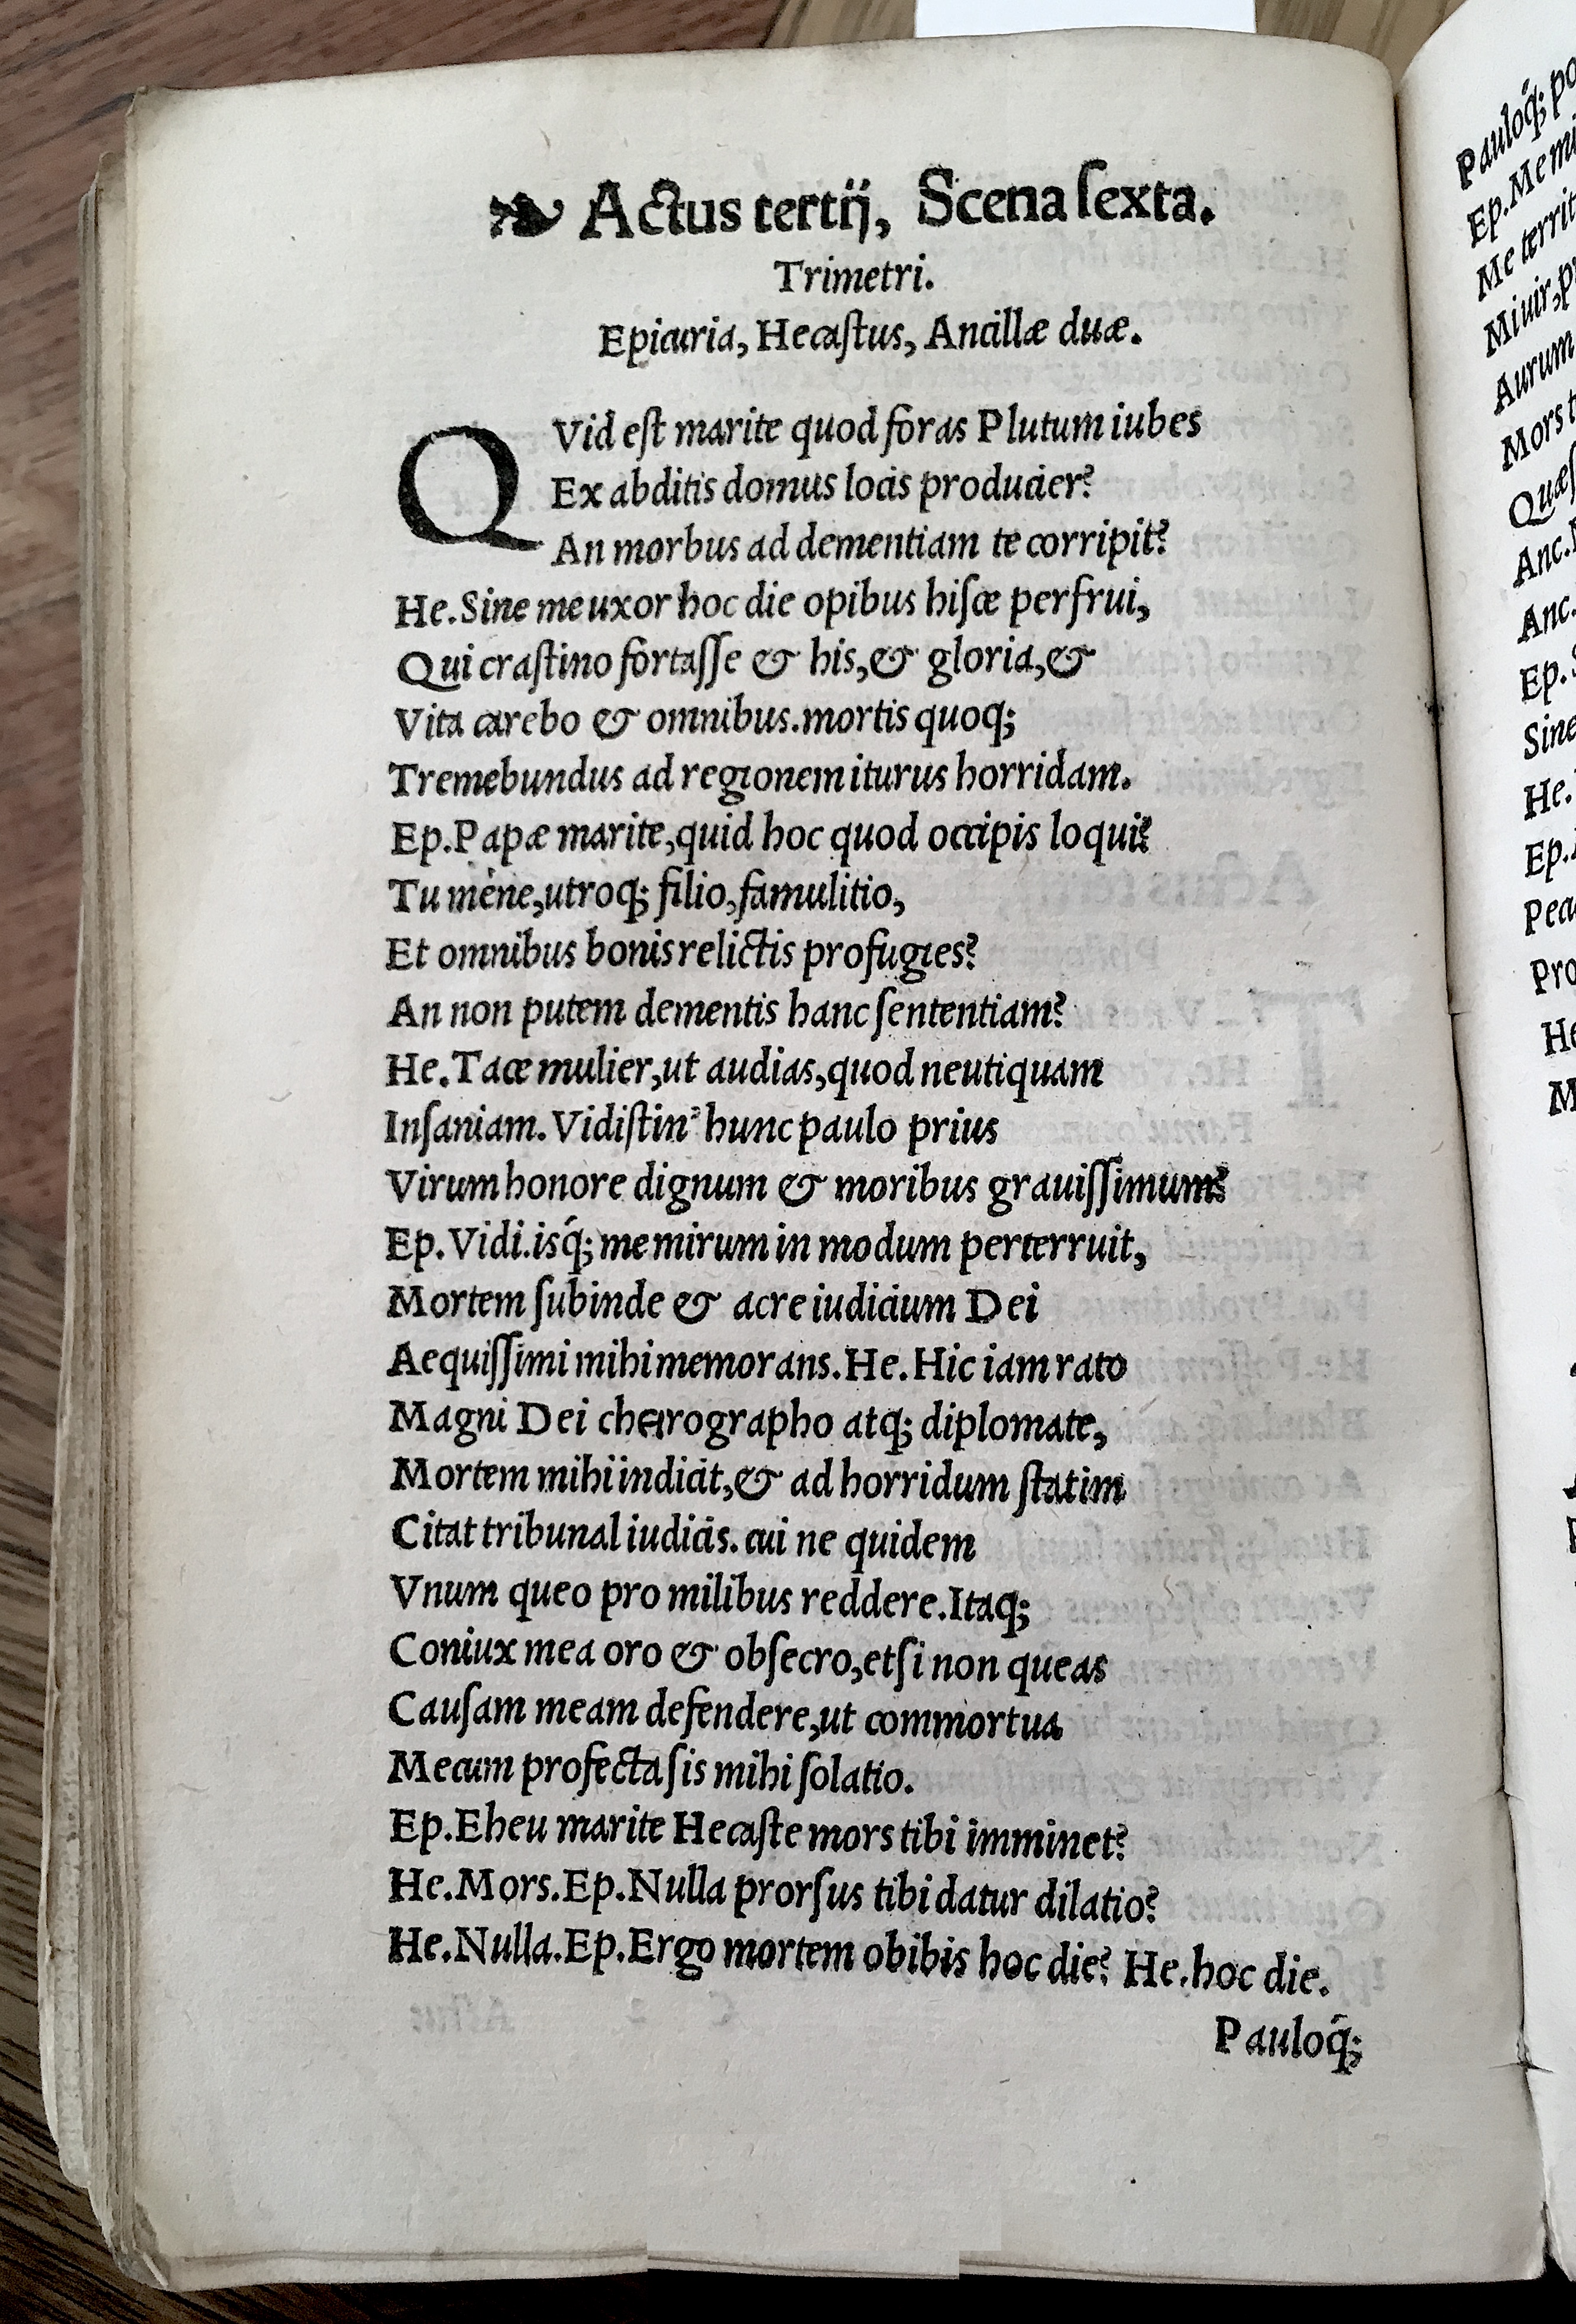 ❧ Actus tertij, Scena ſexta.
Trimetri.
Epicuria, Hecaſtus, Ancillæ duæ.
QVid eſt marite quod foras Plutum iubes
Ex abditis domus locis producier?
An morbus ad dementiam te corripit?
He. Sine me uxor hoc die opibus hiſce perfrui,
Qui craſtino fortaſſe & his, & gloria, &
Vita carebo & omnibus. mortis quoq;
Tremebundus ad regionem iturus horridam.
Ep. Papæ marite, quid hoc quod occipis loqui?
Tu mène, utroq; filio, famulitio,
Et omnibus bonis relictis profugies?
An non putem dementis hanc ſententiam?
He. Tace mulier, ut audias, quod neutiquam
Inſaniam. Vidiſtin' hunc paulo prius
Virum honore dignum & moribus grauiſſimum?
Ep. Vidi. isq́; me mirum in modum perterruit,
Mortem ſubinde & acre iudicium Dei
Aequiſſimi mihi memorans. He. Hic iam rato
Magni Dei cheirographo atq; diplomate,
Mortem mihi indicit, & ad horridum ſtatim
Citat tribunal iudicis. cui ne quidem
Vnum queo pro milibus reddere. Itaq;
Coniux mea oro & obſecro, etſi non queas
Cauſam meam defendere, ut commortua
Mecum profecta ſis mihi ſolatio.
Ep. Eheu marite Hecaſte mors tibi imminet?
He. Mors. Ep. Nulla prorſus tibi datur dilatio?
He. Nulla. Ep. Ergo mortem obibis hoc die? He. hoc die.
Pauloq́;
Pauloq́;
Ep. Me
Me territ
Miuir,
Aurum
Mors
Anc.
Anc.
Ep.
Sine
He.
Ep.